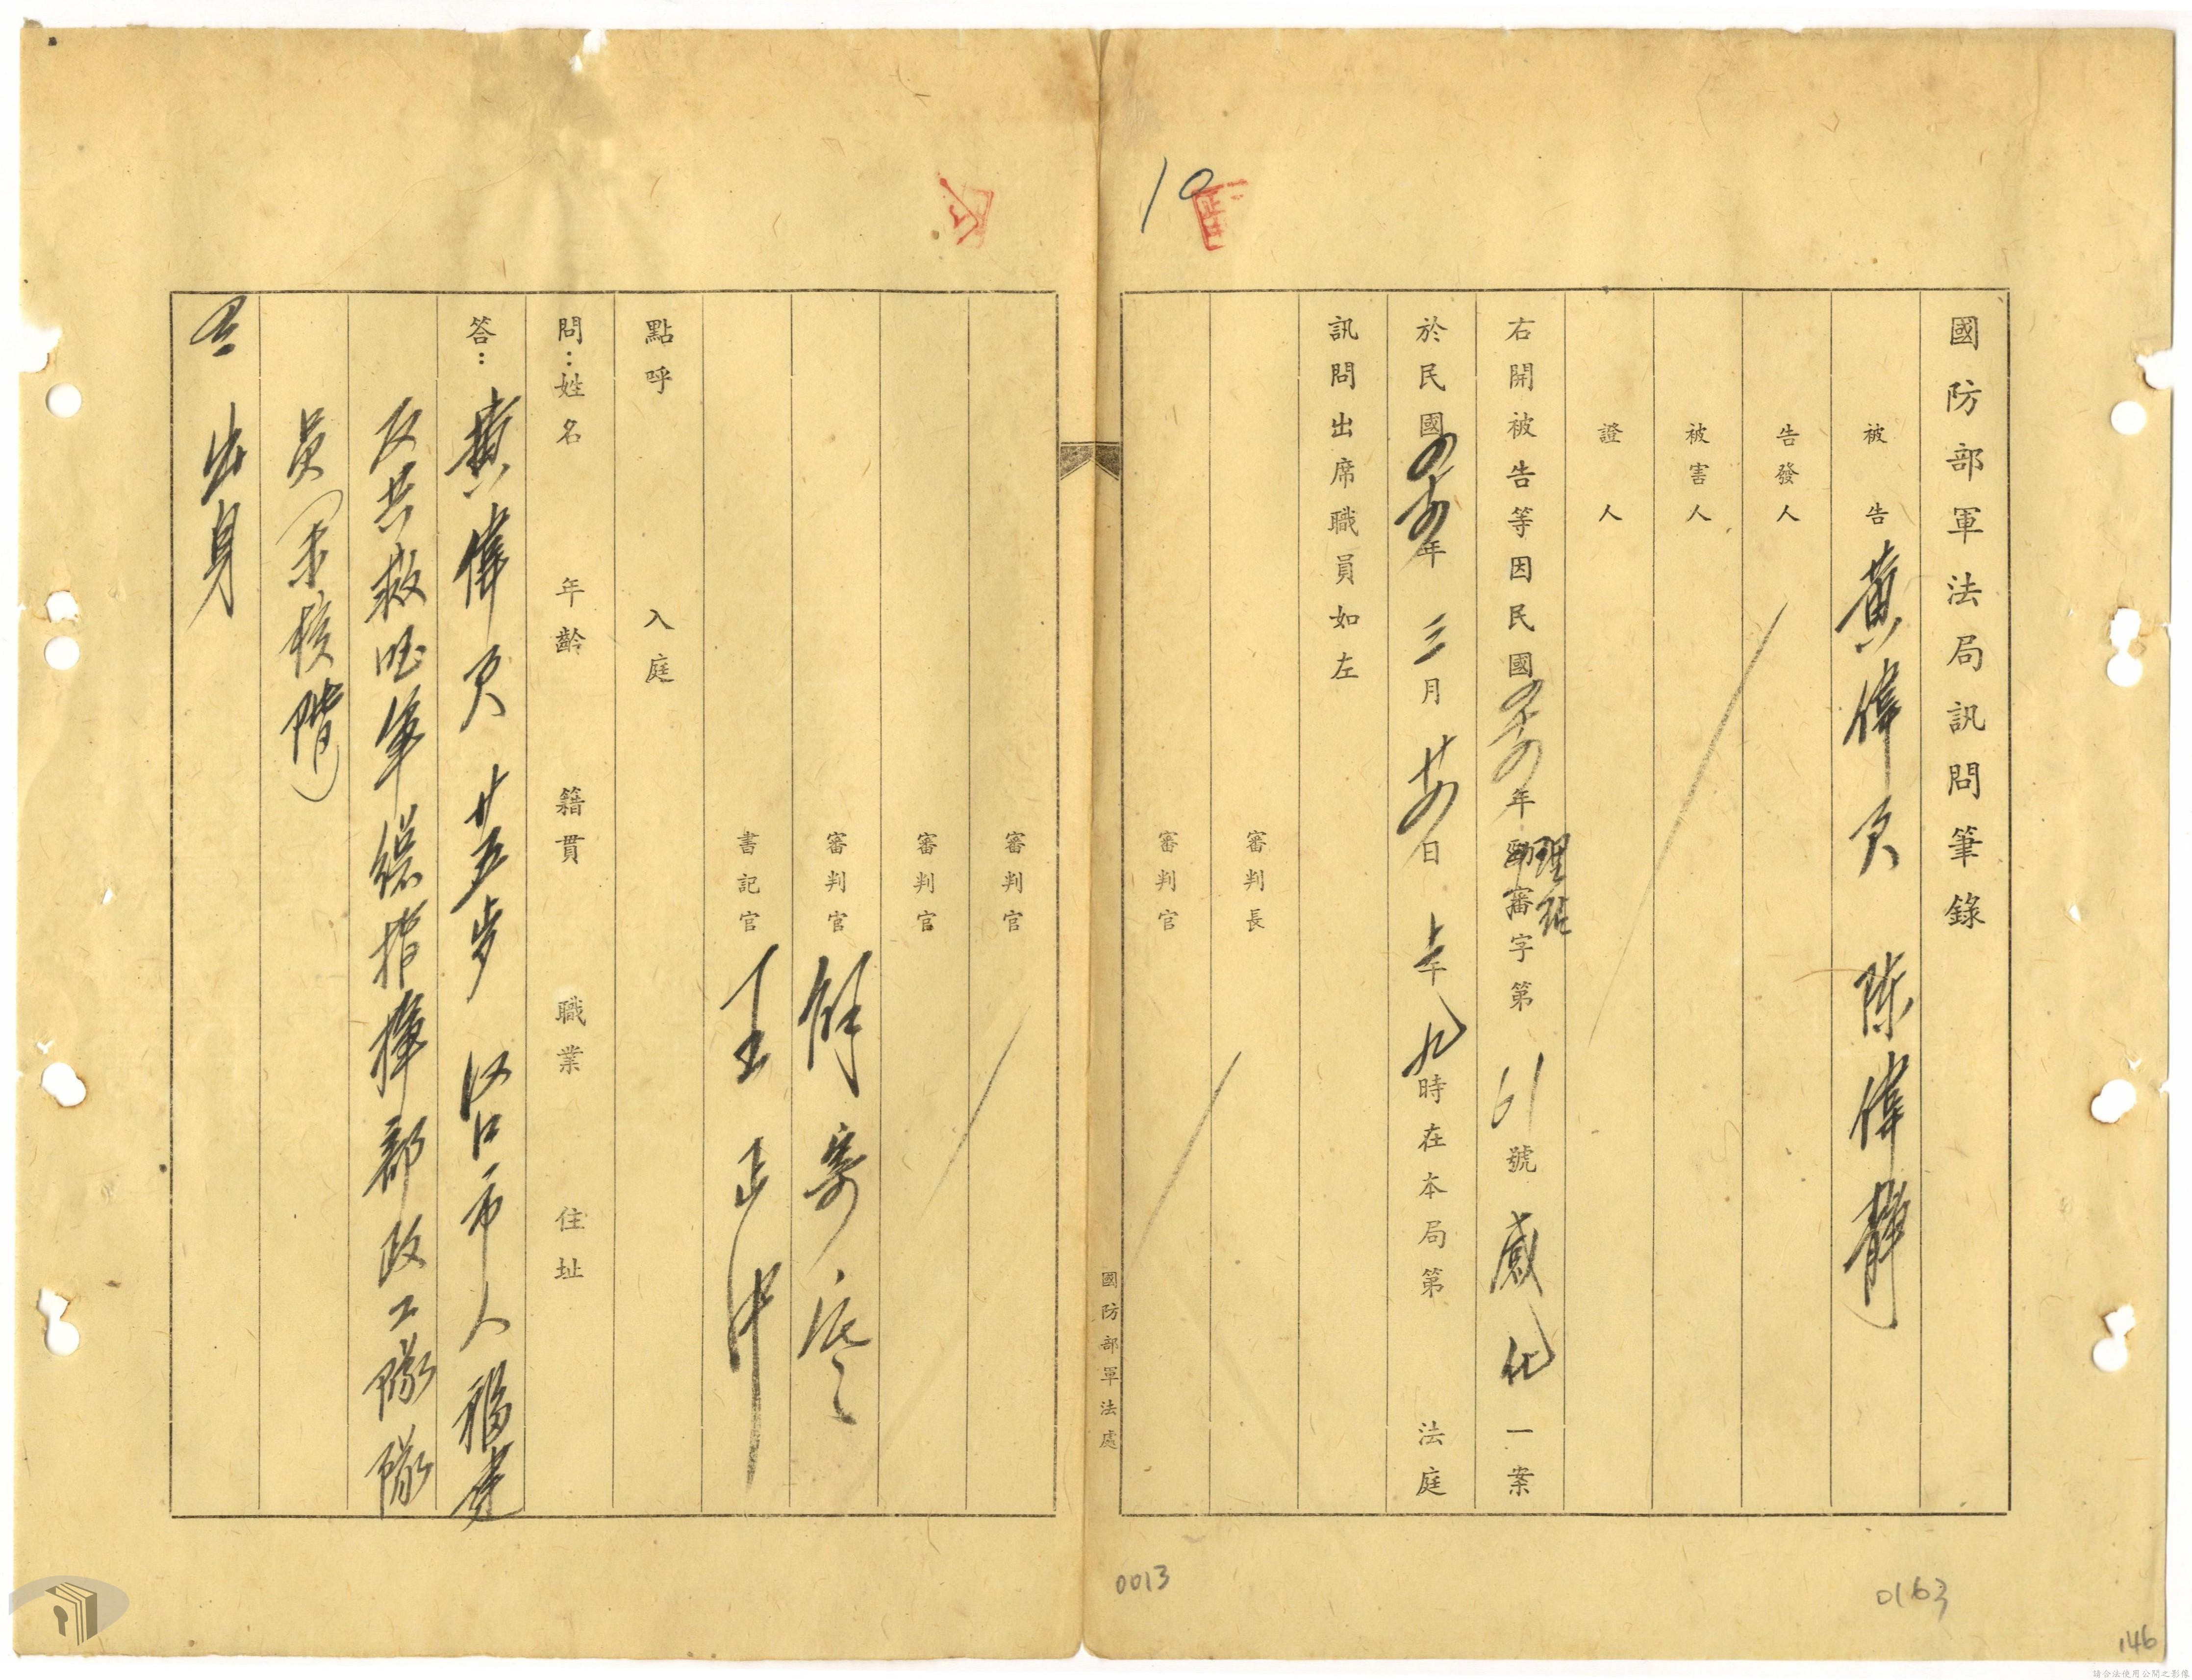 國防部軍法局訊問筆錄
被告 黃偉天 陳偉靜
告發人
被害人
證人
右開被告等因民國四十四年理審字第61號感化一案
於民國四十四年三月廿四日上午九時在本局第 法庭
訊問出席職員如左
審判長
審判官
國防部軍法處
審判官
審判官
審判官
書記官 王正中
點呼 入庭
問：姓名 年齡 籍貫 職業 住址
答：黃偉天 廿五歲 漢口市人 福建
反共救國軍總指揮部政工隊隊
員（未核階）
出身
10
0013
0163
146
請合法使用公開之影像